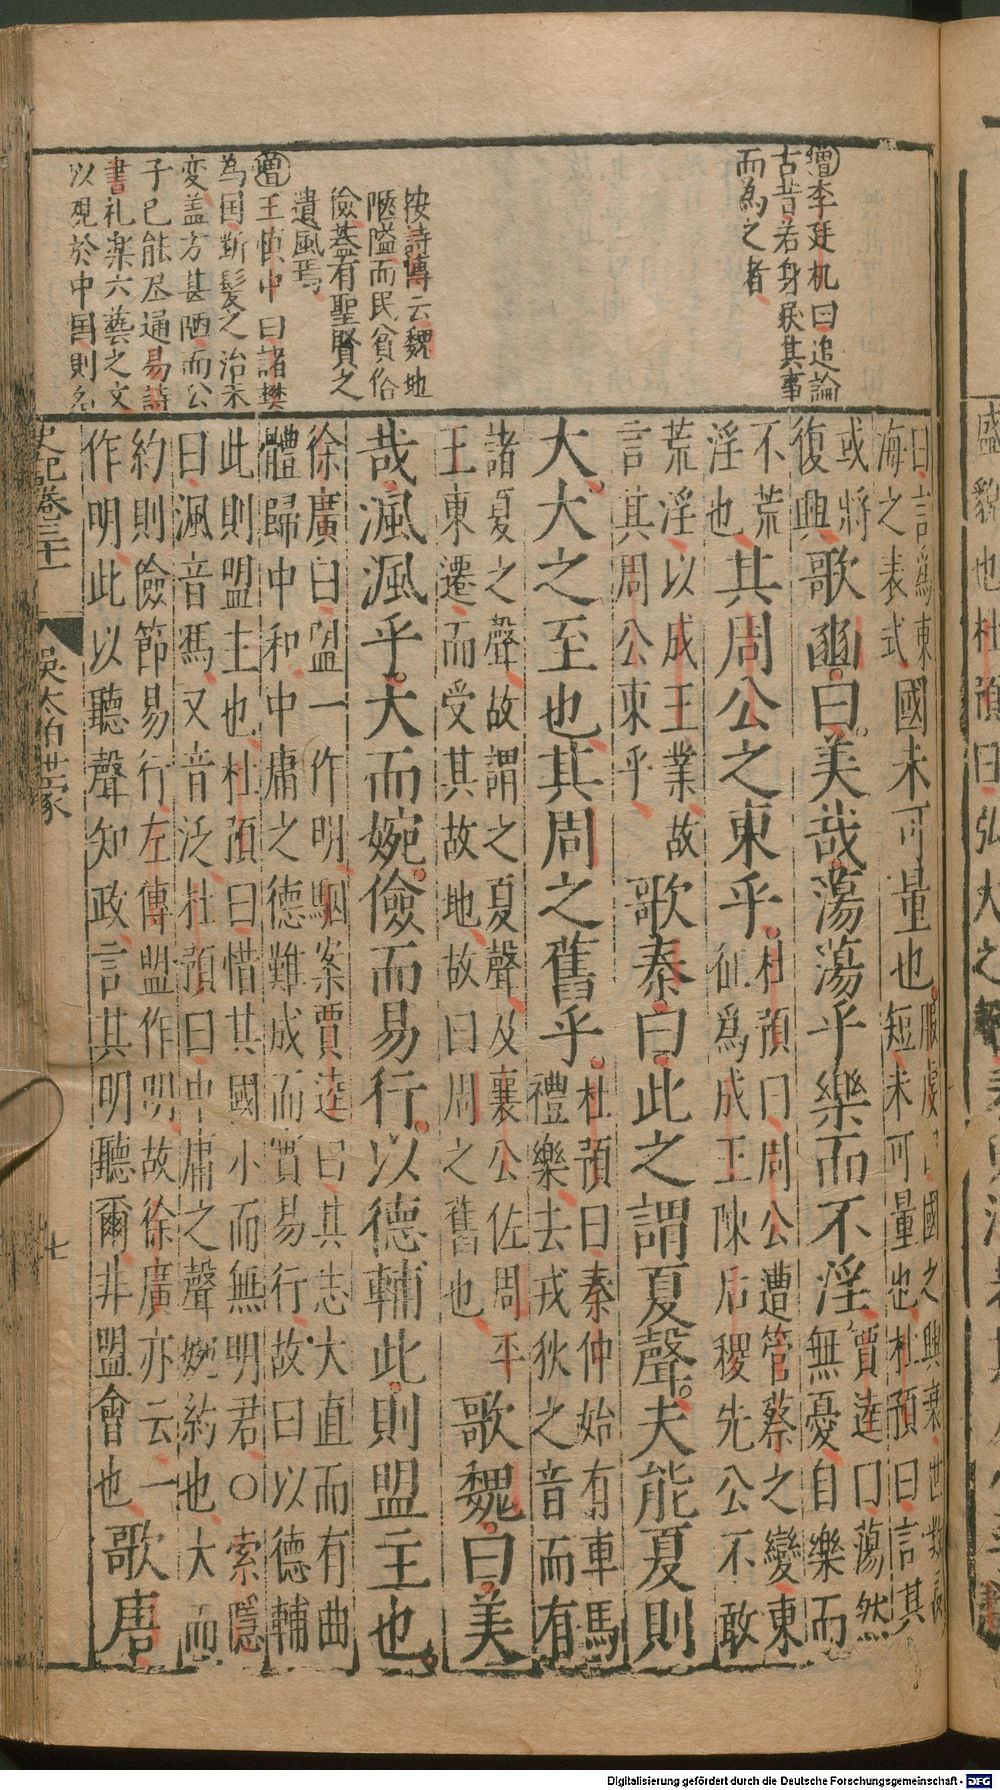 增李廷机曰追論
古昔若身㱕其事
而為之者
按詩傳云魏地
陿隘而民貧俗
儉葢有聖賢之
遺風焉
增王慎中曰諸樊
為国斷髪之治未
変盖方甚陋而公
子已能尽通易詩
書礼楽六藝之文
以覌於中国則名
曰言為東
海之表式
國未可量也
服虔曰國之興衰世數長
短未可量也杜預曰言其
或將
復興
歌豳曰美哉蕩蕩乎樂而不淫
賈逵曰蕩然
無憂自樂而
不荒
淫也
其周公之東乎
杜預曰周公遭管蔡之變東
征爲成王陳后稷先公不敢
荒淫以成王業故
言其周公東乎
歌秦曰此之謂夏聲夫能夏則
大大之至也其周之舊乎
杜預曰秦仲始有車馬
禮樂去戎狄之音而有
諸夏之聲故謂之夏聲及襄公佐周平
王東遷而受其故地故曰周之舊也
歌魏曰美
哉渢渢乎大而婉儉而易行以德輔此則盟主也
徐廣曰盟一作明駰案賈逵曰其志大直而有曲
體歸中和中庸之德難成而實易行故曰以德輔
此則盟主也杜預曰惜其國小而無明君〇索隱
曰渢音馮又音泛杜預曰中庸之聲婉約也大而
約則儉節易行左傳盟作明故徐廣亦云一
作明此以聽聲知政言其明聽爾非盟會也
歌唐
史記卷三十一
吳太伯世家
七
盛貌
也杜預曰弘大之
Digitalisierung gefördert durch die Deutsche Forschungsgemeinschaft - DFG